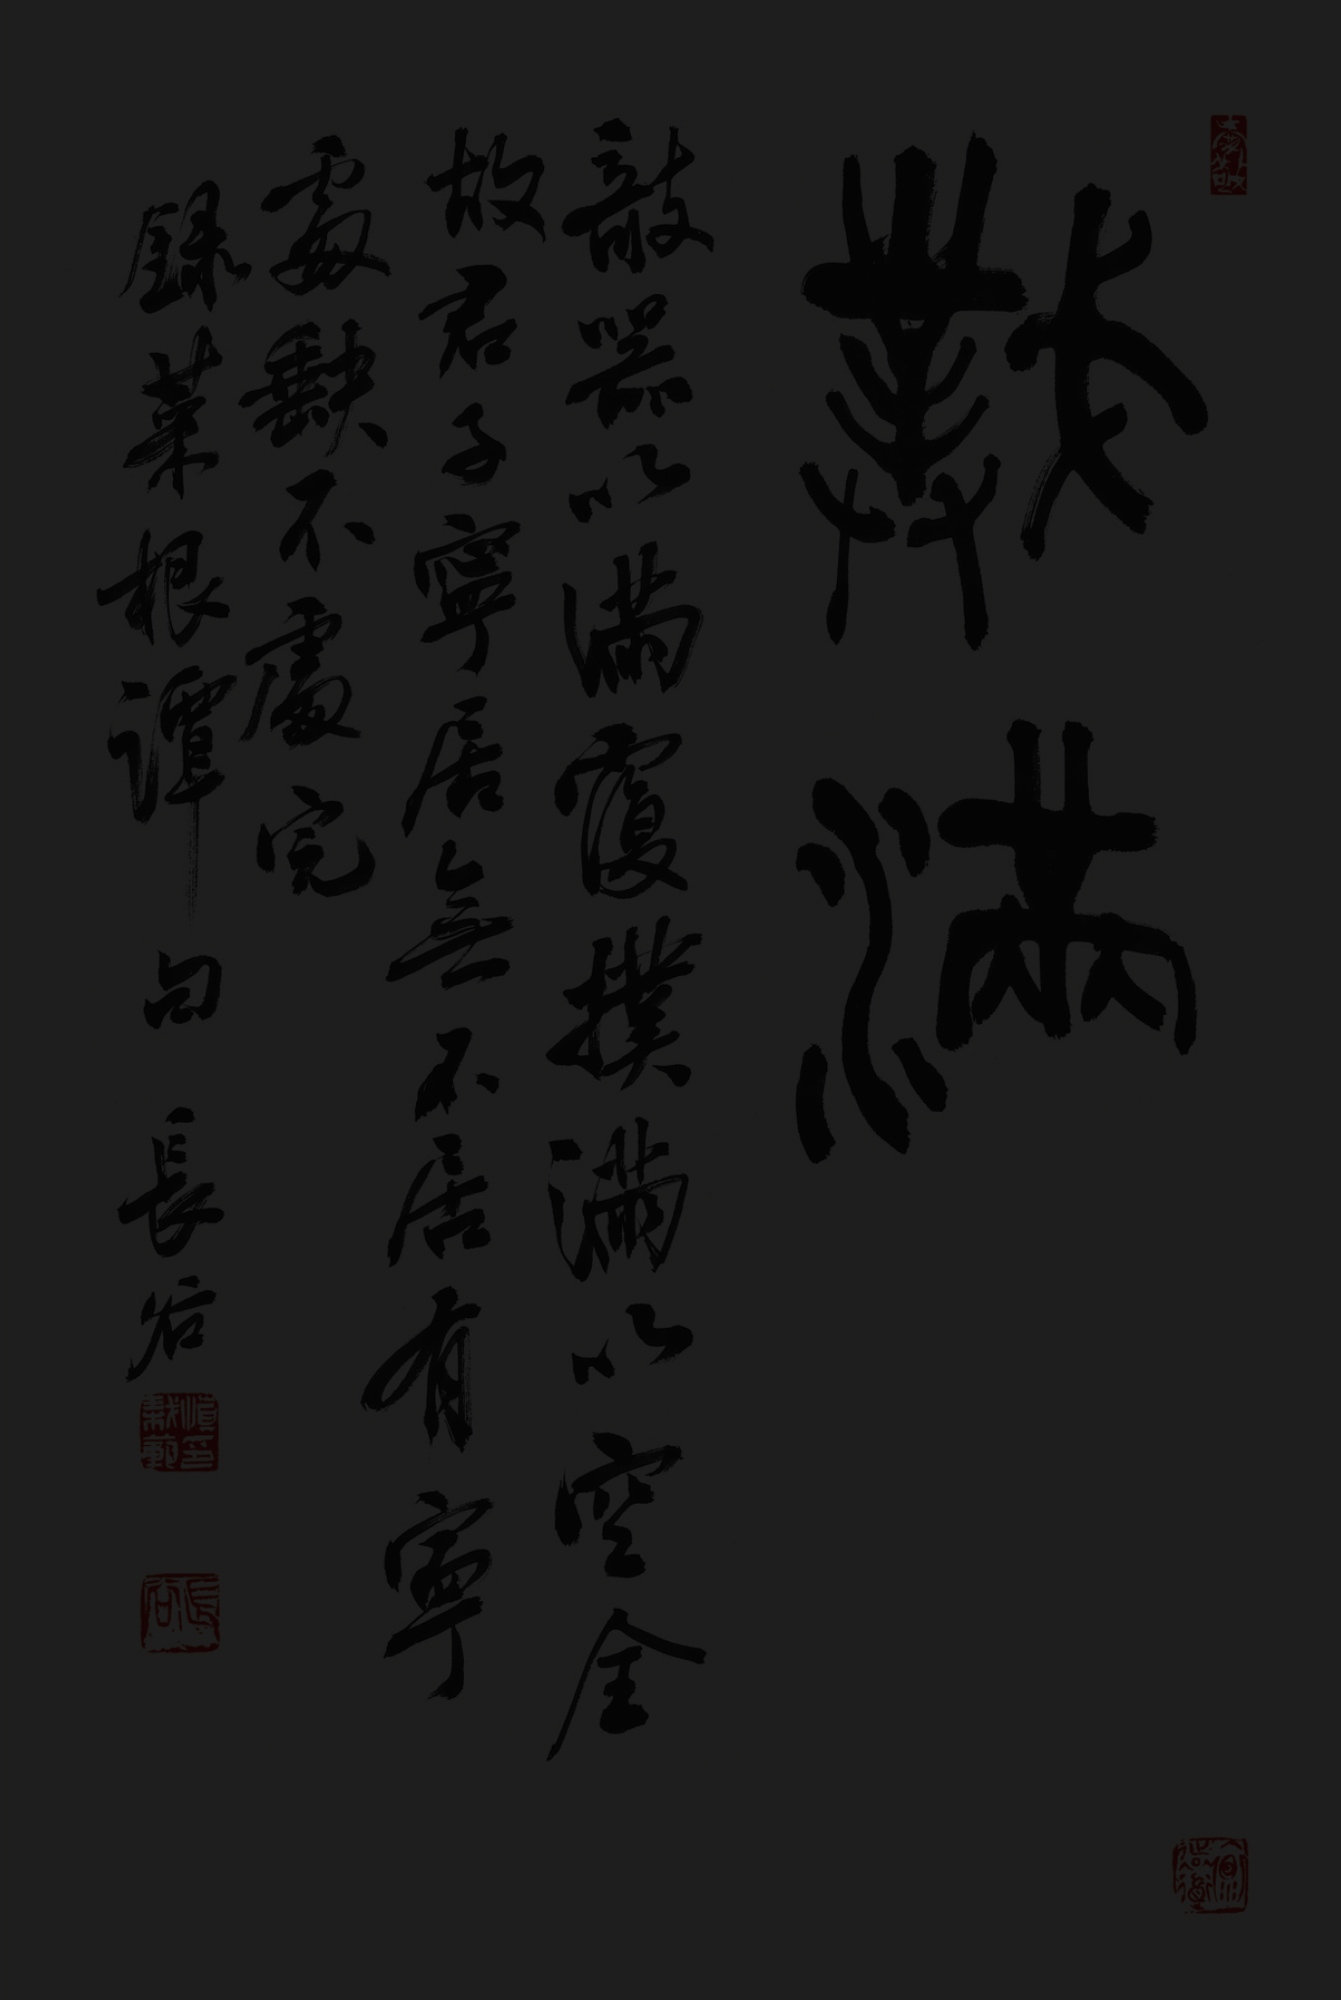 撲滿
敧器以滿覆撲滿以空全
故君子寧居無不居有寧
處缺不處完
錄菜根譚句 長谷